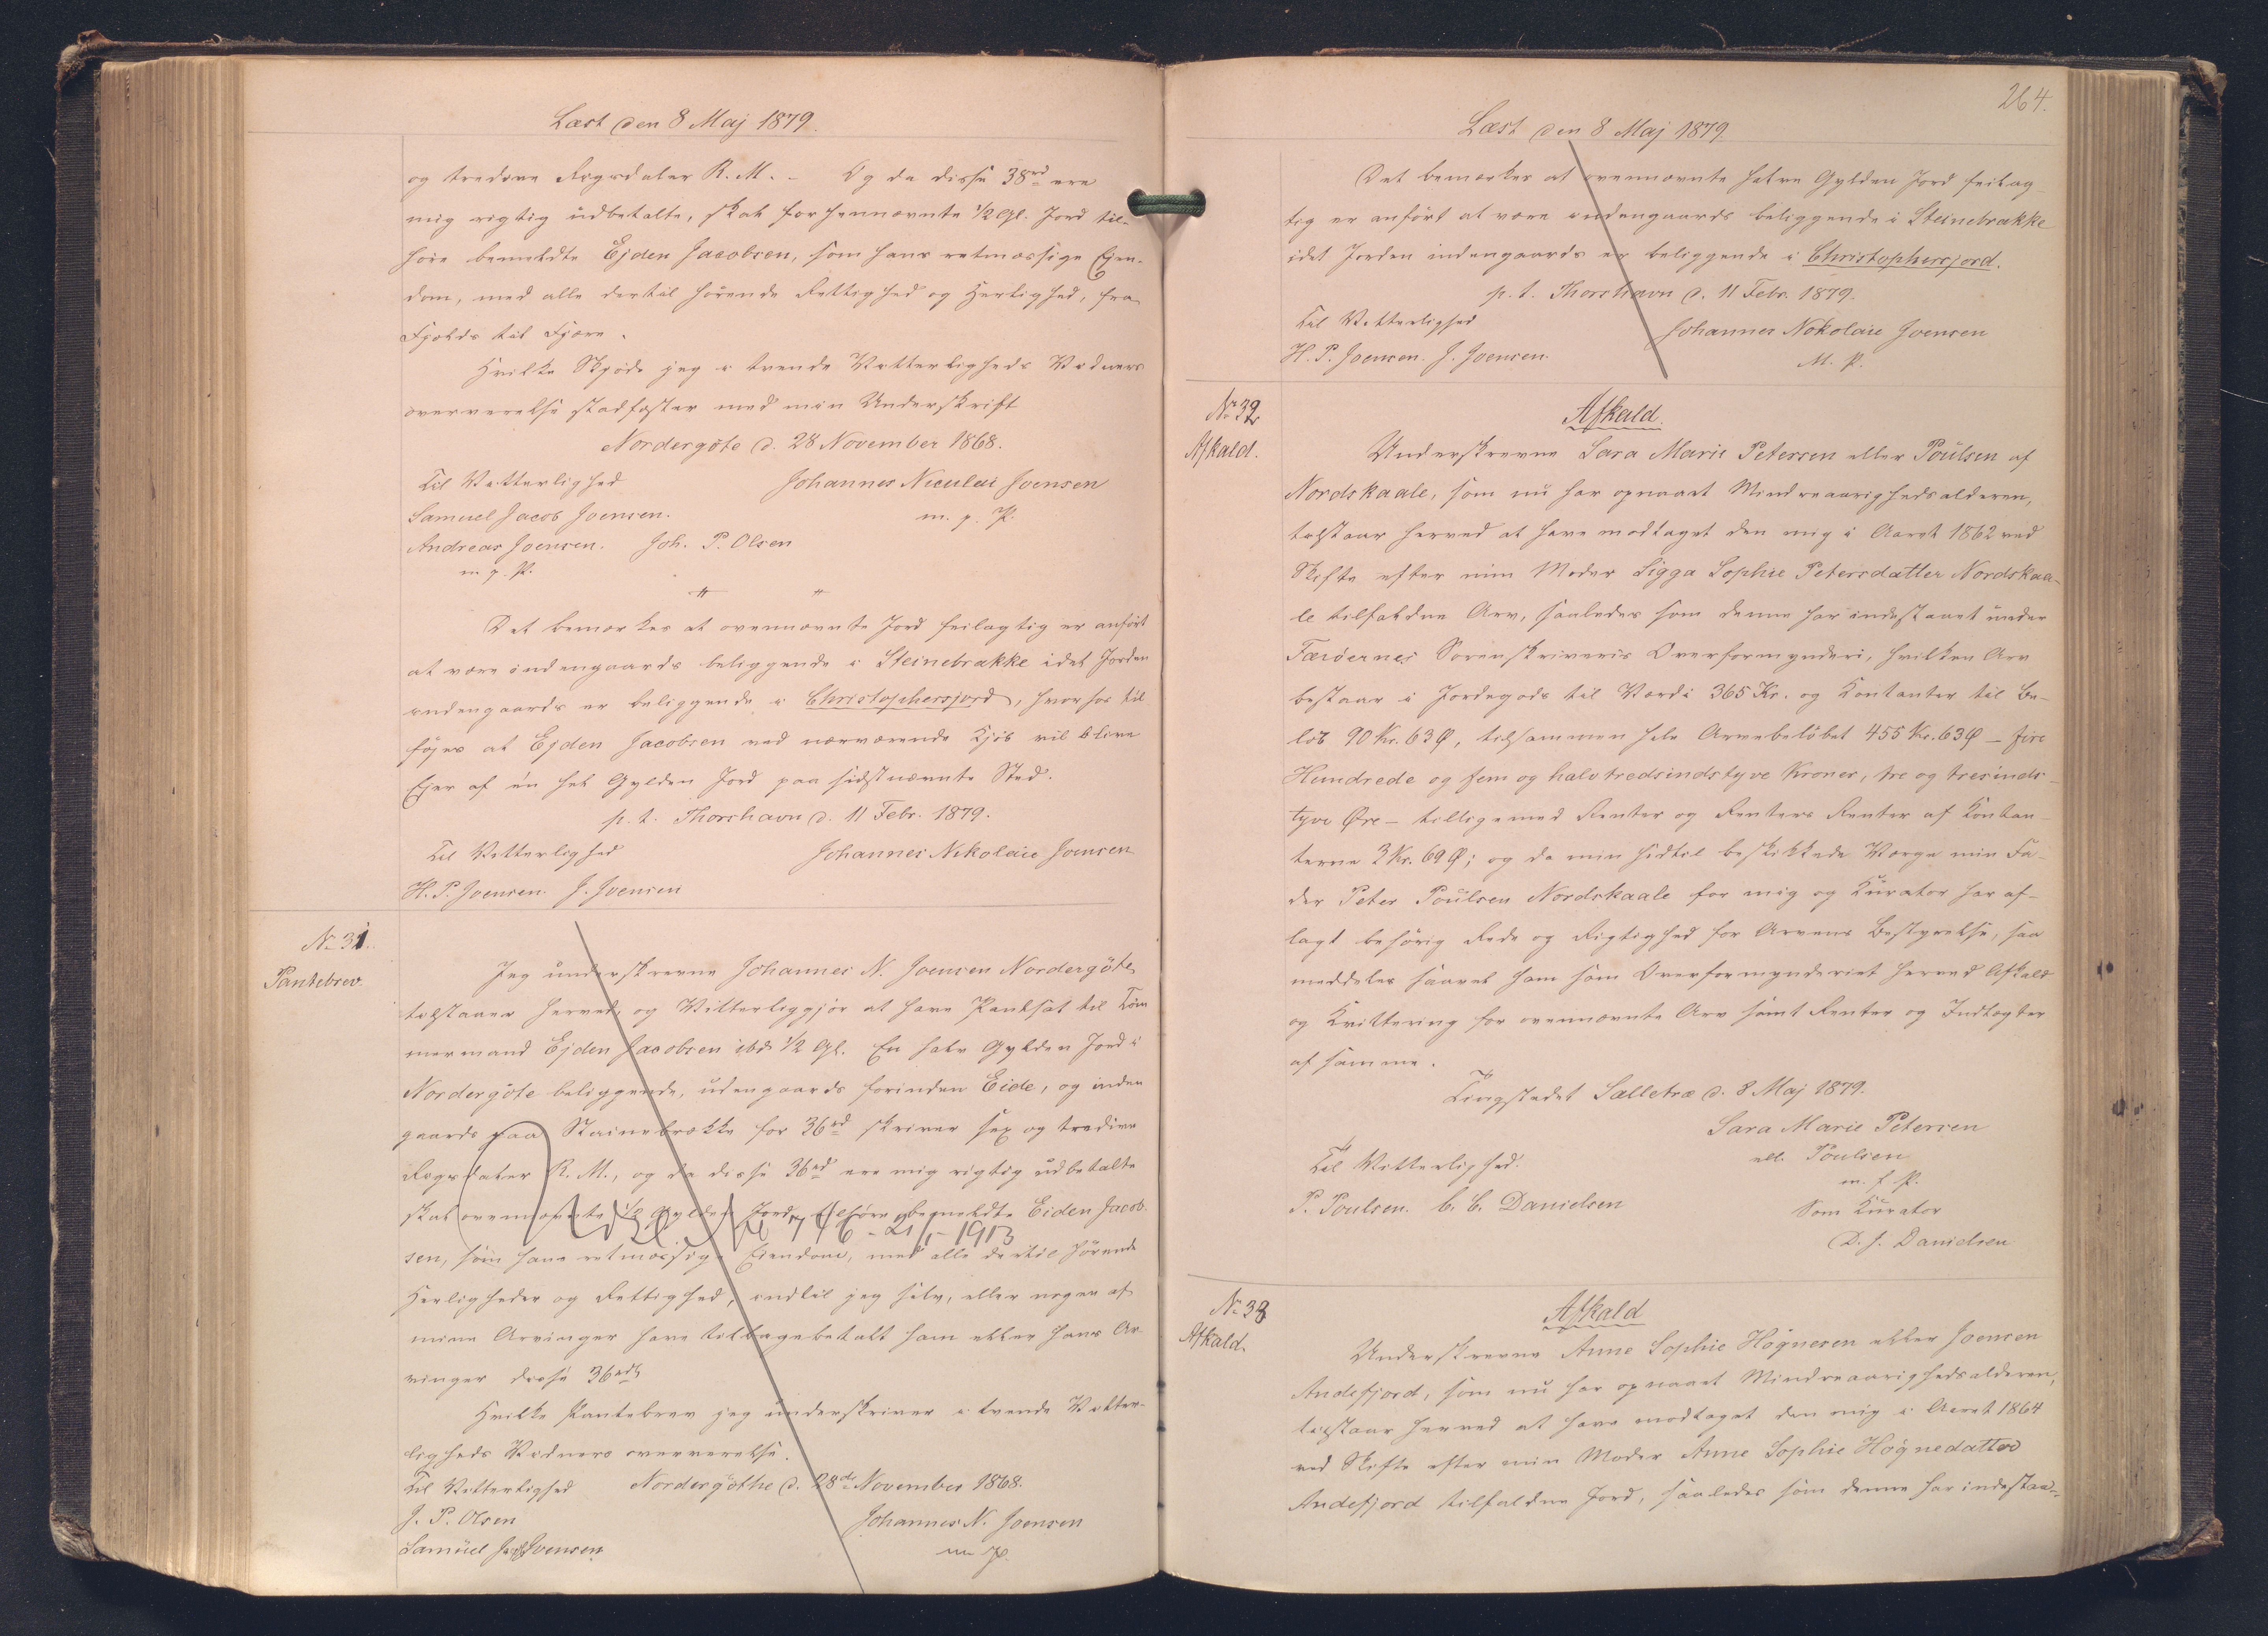 Læst den 8 Maj 1879.
og tredive Rigsdaler R. M. – Og da disse 38rd ere
mig rigtig udbetalte, skal forhennævnte 1/2 Gl. Jord til-
høre bemeldte Ejden Jacobsen, som hans retmæssige Eien-
dom, med alle dertil hørende Rettighed og Herlighed, fra
Fjelds til Fjære.
Hvilke Skjøde jeg i tvende Vitterligheds Vidners
overværelse stadfæster med min Underskrift
Nordergöte d. 28 November 1868.
Til Vitterlighed
Johannes Niculai Joensen
Samuel Jacob Joensen.
m. p. P.
Andreas Joensen. Joh. P. Olsen
m. p. P.
Det bemærkes at ovennævnte Jord feilagtig er anført
at være indengaards beliggende i Steinebrække idet Jorden
indengaards er beliggende i Christophersjord, hvorhos til-
føjes at Ejden Jacobsen ved nærværende Kjöb vil blive
Ejer af én hel Gylden Jord paa sidstnævnte Sted.
p. t. Thorshavn d. 11 Febr. 1879.
Til Vitterlighed
Johannes Nikolaie Joensen
H. P. Joensen. J. Joensen
No 31.
Pantebrev.
Jeg underskrevne Johannes N. Joensen Nordergöte
tilstaaer herved, og Vitterliggjør at have Pantsat til Töm
mermand Ejden Jacobsen ibd: 1/2 Gl. En halv Gylden Jord i
Nordergöte beliggende, udengaards forinden Eide, og inden
gaards paa Steinebrække for 36rd skriver sex og tredive
Rigsdaler R. M., og da disse 36rd ere mig rigtig udbetalte
skal ovennævnte 1/2 Gylden Jord, tilhøre bemeldte Eiden Jacob
746 - 21/1 - 1913
sen, som hans retmæssige Eiendom, med alle dertil hørende
Herligheder og Rettighed, indtil jeg selv, eller nogen af
mine Arvinger have tilbagebetalt ham eller hans Ar-
vinger disse 36rd
Hvilke Pantebrev jeg underskriver i tvende Vitter-
ligheds Vidners overværelse.
Til Vitterlighed Nordergöthe d. 28de November 1868.
J. P. Olsen
Johannes N. Joensen
Samüel Joensen
m P.
264.
Læst den 8 Maj 1879.
Det bemærkes at ovennævnte halve Gylden Jord feilag-
tig er anført at være indengaards beliggende i Steinebrække
idet Jorden indengaards er beliggende i Christophersjord.
p. t. Thorshavn d. 11 Febr. 1879.
Til Vitterlighed
Johannes Nokolaie Joensen
H. P. Joensen. J. Joensen.
M. P.
No 32
Afkald.
Afkald.
Underskrevne Sara Marie Petersen eller Poulsen af
Nordskaale, som nu har opnaaet Mindreaarighedsalderen,
tilstaar herved at have modtaget den mig i Aaret 1862 ved
Skifte efter min Moder Sigga Sophie Petersdatter Nordskaa-
le tilfaldne Arv, saaledes som denne har indestaaet under
Færøernes Sorenskriveris Overformynderi, hvilken Arv
bestaar i Jordegods til Værdi 365 Kr. og Kontanter til Be-
løb 90 Kr. 63 Ø, tilsammen hele Arvebeløbet 455 Kr. 63 Ø – fire
Hundrede og fem og halvtredsindstyve Kroner, tre og tresinds-
tyve Øre – tilligemed Renter og Renters Renter af Kontan-
terne 3 Kr. 69 Ø; og da min hidtil beskikkede Værge min Fa-
der Peter Poulsen Nordskaale for mig og Kurator har af-
lagt behørig Rede og Rigtighed for Arvens Bestyrelse, saa
meddeles saavel ham som Overformynderiet herved Afkald
og Kvittering for ovennævnte Arv samt Renter og Indtægter
af samme.
Tingstedet Sælletræ d. 8 Maj 1879.
Sara Marie Petersen
Til Vitterlighed.
ell. Poulsen
m. f. P.
P. Poulsen. C. C. Danielsen
Som Kurator
D. J. Danielsen
No 33
Afkald.
Afkald
Underskrevne Anne Sophie Högnesen eller Joensen
Andefjord, som nu har opnaaet Mindreaarighedsalderen,
tilstaar herved at have modtaget den mig i Aaret 1864
ved Skifte efter min Moder Anne Sophie Högnedatter
Andefjord tilfaldne Jord, saaledes som denne har indestaa-